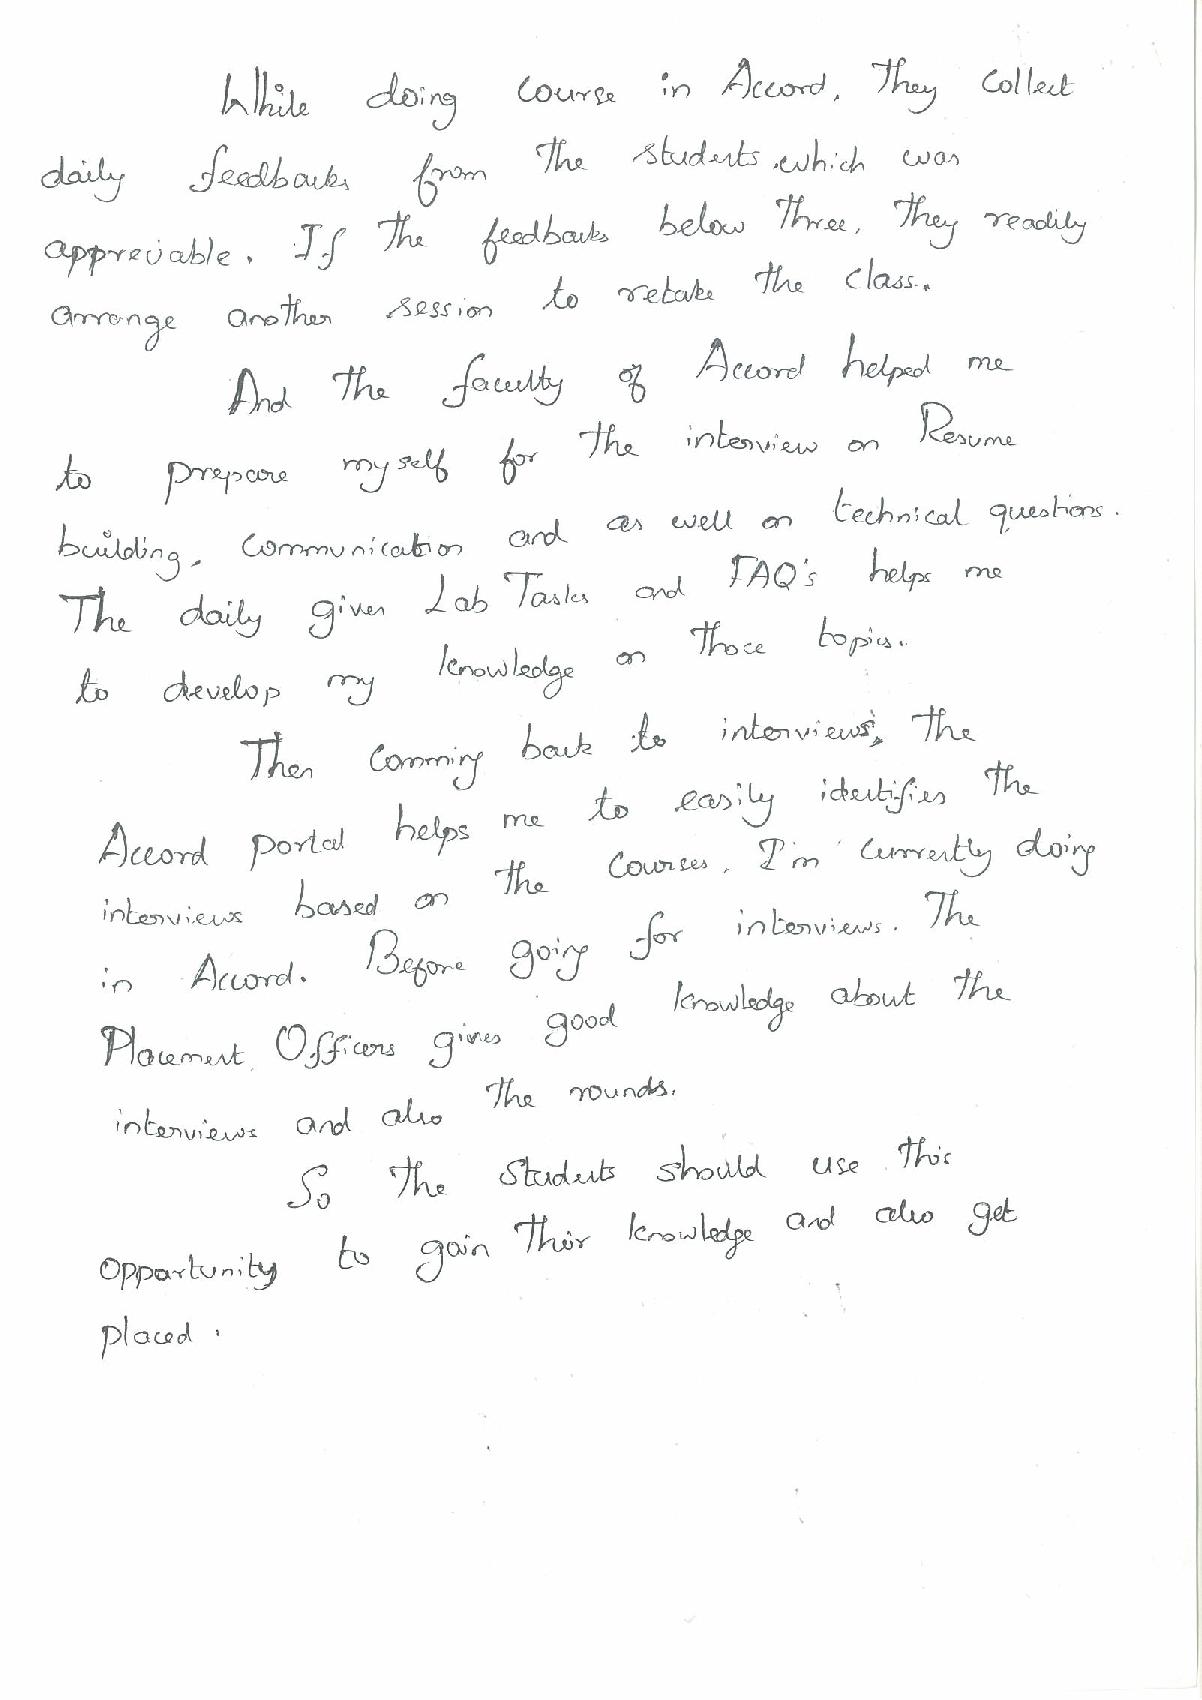 While doing course in Accord, They collect
daily feedbacks from the students which was
appreciable. If the feedbacks below three, they readily
arrange another session to retake the class.
And the faculty of Accord helped me
to prepare myself for the interview on Resume
building, Communication and as well on technical questions.
The daily given Lab Tasks and FAQ's helps me
to develop my knowledge on those topics.
Then Comming back to interviews, the
Accord portal helps me to easily identifies the
interviews based on the Courses. I'm Currently doing
in Accord. Before going for interviews. The
Placement Officers gives good knowledge about the
interviews and also the rounds.
So the students should use this
opportunity to gain their knowledge and also get
placed.